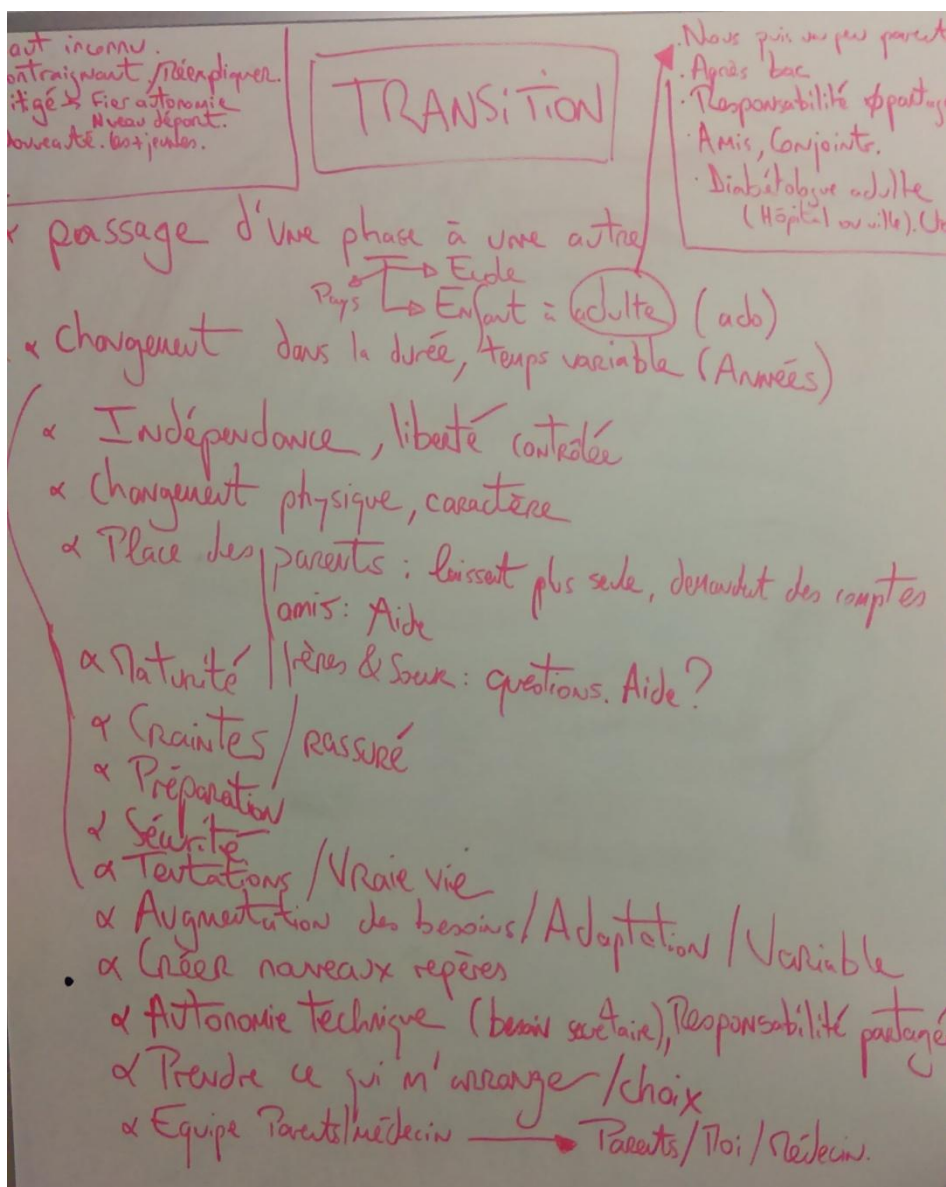 aut inconnu.
ontraignant / Réexpliquer.
itigé → Fier autonomie
Nveau départ.
ouveauté. les + jeunes.
TRANSiTiON
. Nous puis un peu parent
. Après bac
. Responsabilité φ partag
. Amis, Conjoints.
. Diabétologue adulte
(Hôpital ou ville).
∝ passage d'une phase à une autre
Pays → Ecole
→ Enfant : adulte (ado)
∝ Changement dans la durée, temps variable (Années)
∝ Indépendance, liberté contrôlée
∝ Changement physique, caractère
∝ Place des parents : laissent plus seule, demandent des comptes
amis : Aide
∝ Maturité frères & Soeur : questions. Aide ?
∝ Craintes / rassuré
∝ Préparation
∝ Sécurité
∝ Tentations / Vraie vie
∝ Augmentation des besoins / Adaptation / Variable
∝ Créer nouveaux repères
∝ Autonomie technique (besoin secrétaire), Responsabilité partagé
∝ Prendre ce qui m'arrange / choix
∝ Equipe Parents/médecin → Parents / Moi / Médecin.